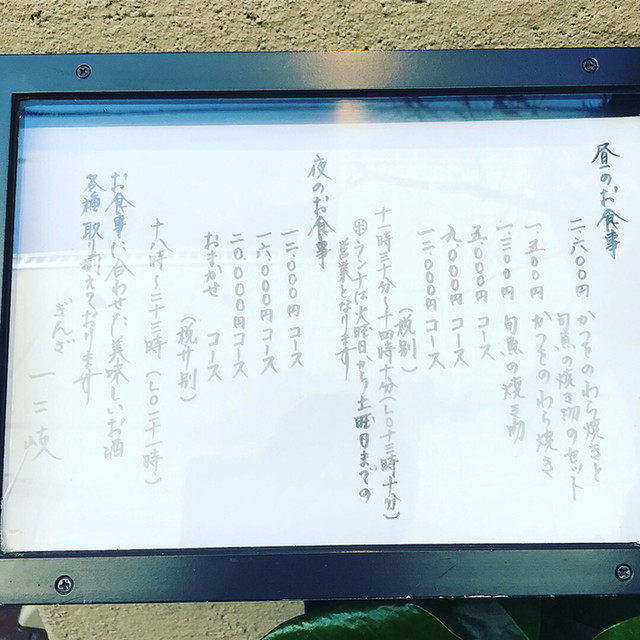 昼のお食事
二、六〇〇円 かつをのわら焼きと
旬魚の焼き物のセット
一、五〇〇円 かつをのわら焼き
一、三〇〇円 旬魚の焼き物
五、〇〇〇円 コース
九、〇〇〇円 コース
一二、〇〇〇円 コース
(税別)
十一時三十分〜十四時十分(LO十三時十分)
ランチは火曜日から土曜日までの
営業となります
夜のお食事
一二、〇〇〇円 コース
一六、〇〇〇円 コース
二〇、〇〇〇円 コース
おまかせ コース
(税サ別)
十八時〜二十三時(LO二十一時)
お食事に合わせた美味しいお酒
各種取り揃えております
ぎんざ 一二岐